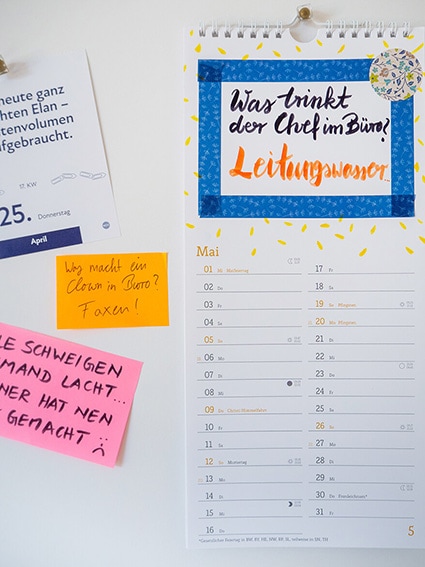 heute ganz
hten Elan –
tenvolumen
fgebraucht.
17. KW
25. Donnerstag
April
Was macht ein
Clown im Büro?
Faxen!
LE SCHWEIGEN
EMAND LACHT...
NER HAT NEN
GEMACHT
Was trinkt
der Chef im Büro?
Leitungswasser...
Mai
01 Mi Maifeiertag
02 Do
03 Fr
04 Sa
05 So
06 Mo
07 Di
08 Mi
09 Do Christi Himmelfahrt
10 Fr
11 Sa
12 So Muttertag
13 Mo
14 Di
15 Mi
16 Do
17 Fr
18 Sa
19 So Pfingsten
20 Mo Pfingsten
21 Di
22 Mi
23 Do
24 Fr
25 Sa
26 So
27 Mo
28 Di
29 Mi
30 Do Fronleichnam*
31 Fr
5